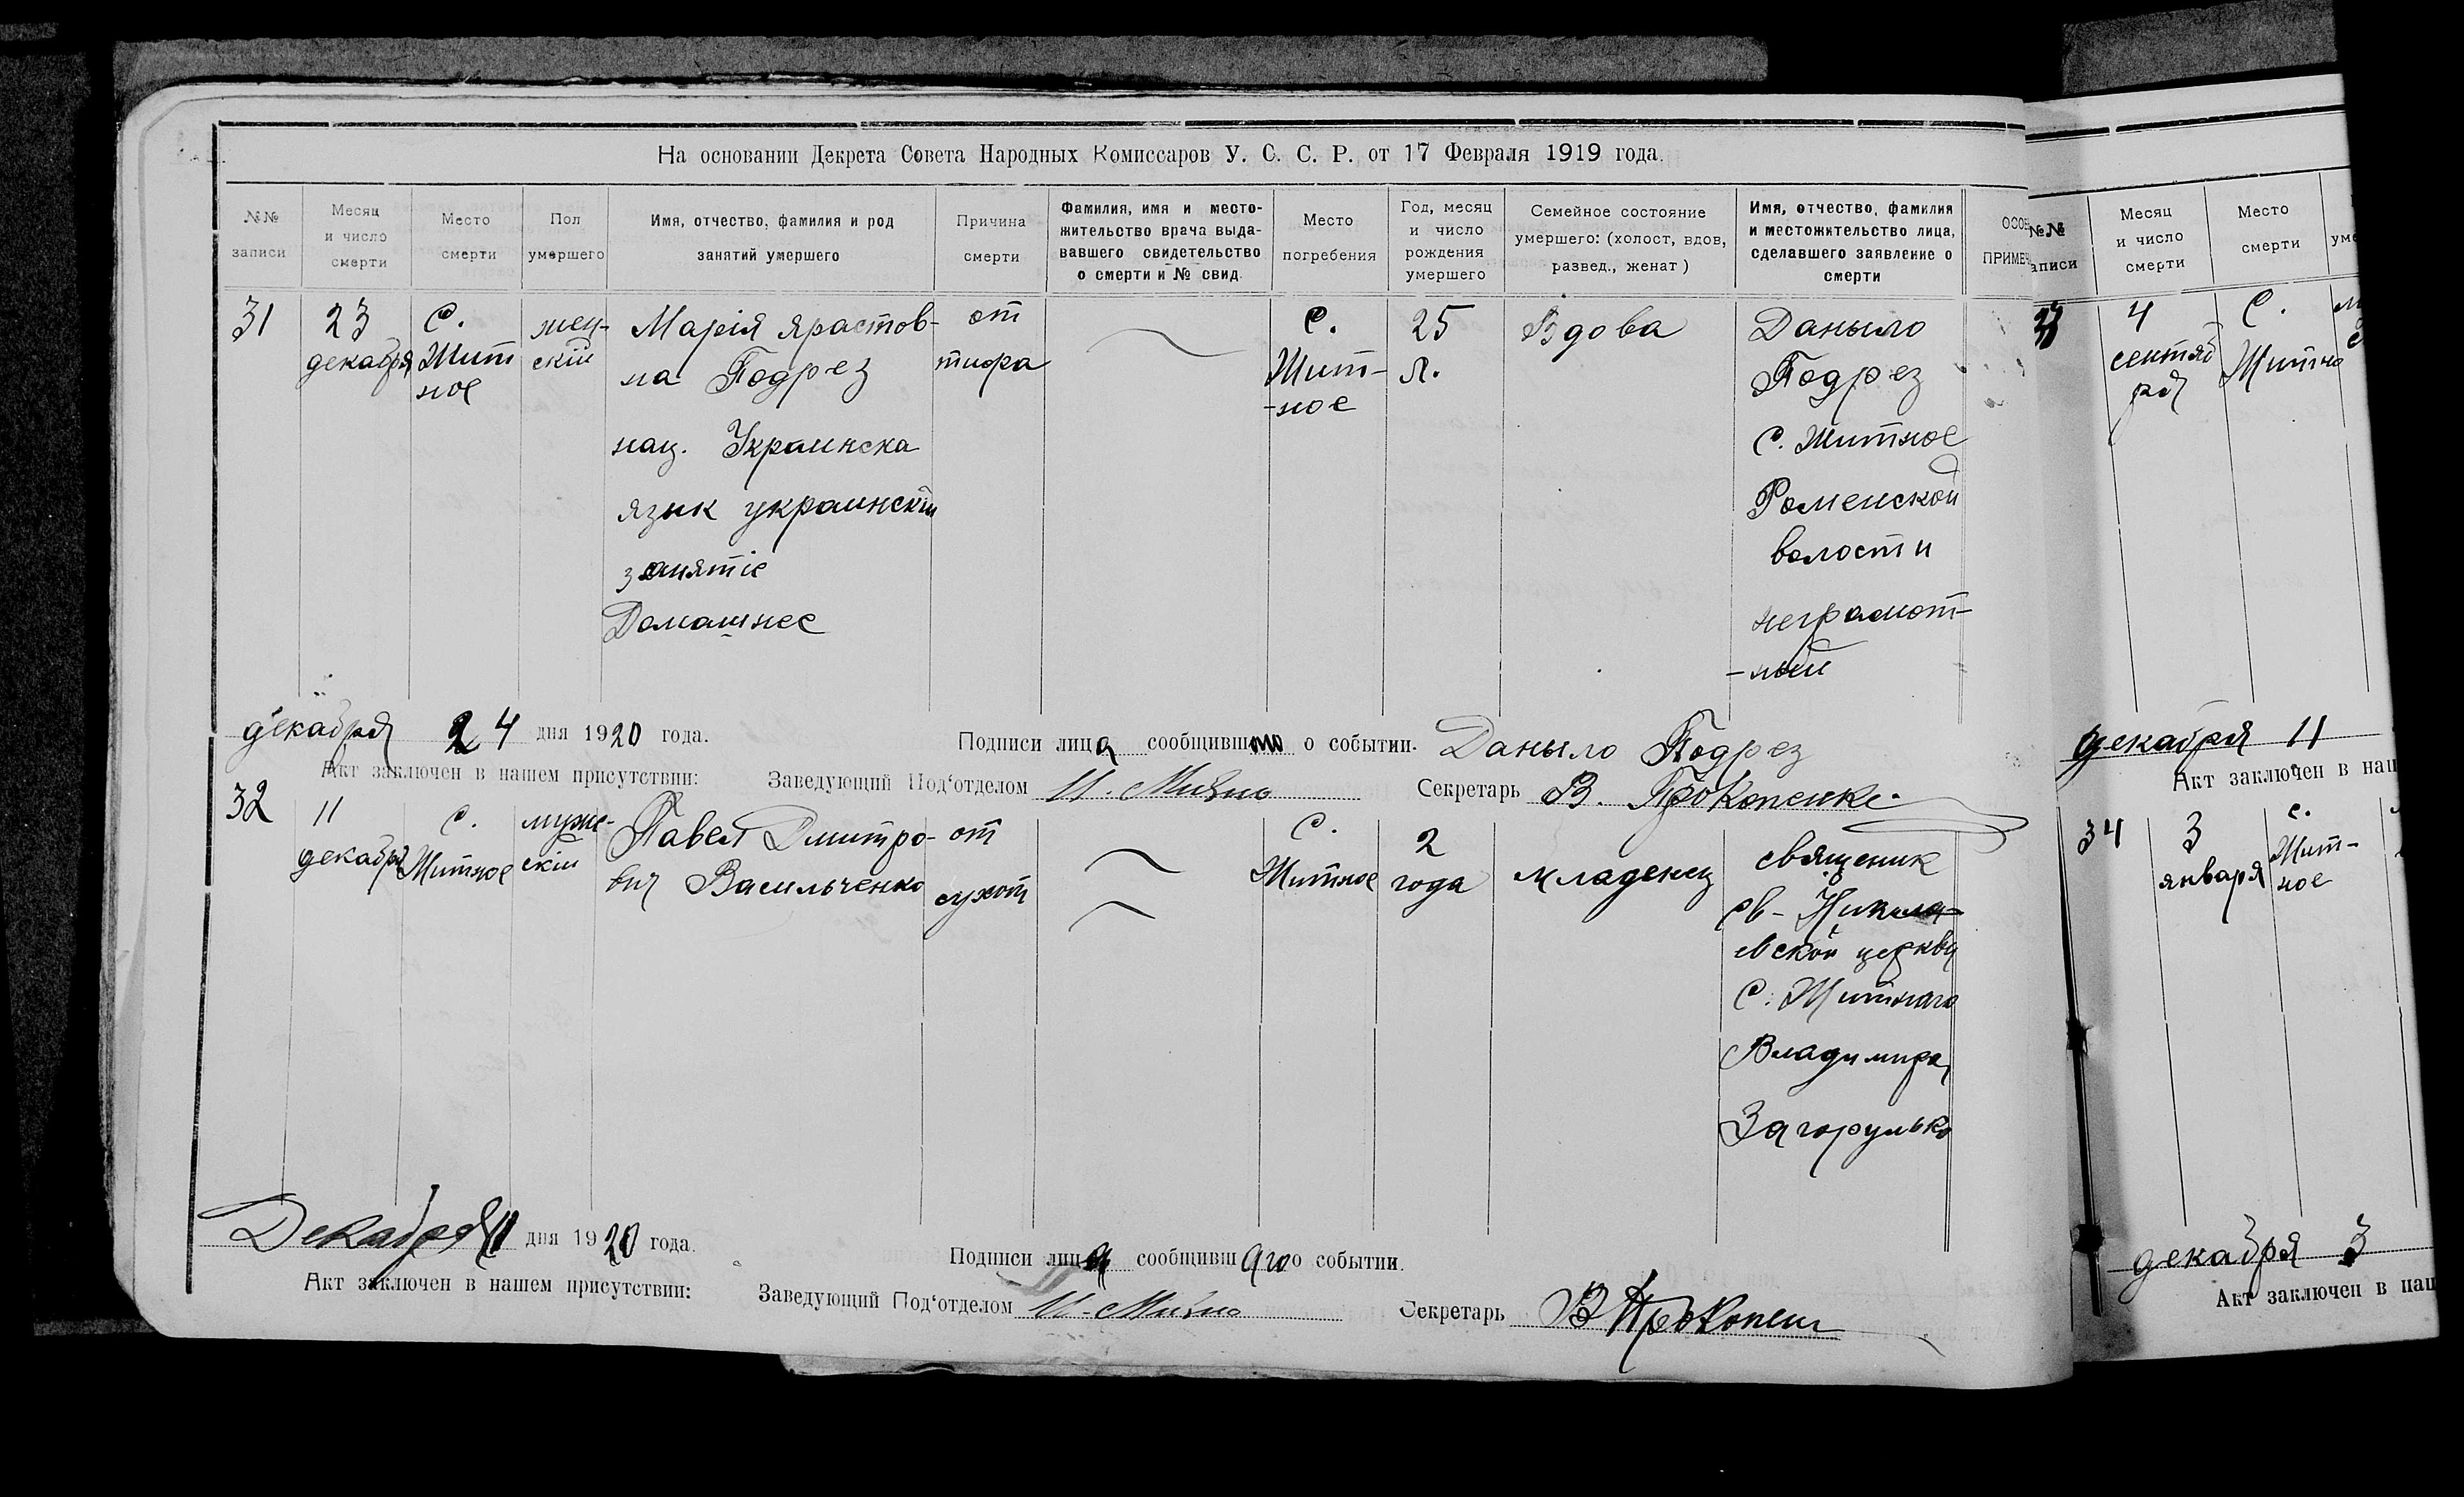 На основании Декрета Совета Народных Комиссаров У. С. С. Р. от 17 Февраля 1919 года.
№№ записи
Месяц и число смерти
Место смерти
Пол умершего
Имя, отчество, фамилия и род занятий умершего
Причина смерти
Фамилия, имя и место-
жительство врача выда-
вавшего свидетельство
о смерти и № свид.
Место погребения
Год, месяц и число рождения умершего
Семейное состояние умершего: (холост, вдов, развед., женат)
Имя, отчество, фамилия
и местожительство лица,
сделавшего заявление о
смерти
ОСОБ
ПРИМЕЧ
31
23
декабря
С.
Жит
ное
жен-
скій
Марія Ярастов-
на Подрез
нац. Украинска
язык украинскій
занятіе
Домашнее
от
тифа
С.
Жит-
-ное
25
л.
Вдова
Даныло
Подрез
С. Житное
Роменской
волости
неграмот-
-ный
декабря 24 дня 1920 года.
Подписи лица сообщивш о событии. Даныло Подрез
Акт заключен в нашем присутствии: Заведующий Под'отделом И. Секретарь В. Прокопенко
32
11
декабря
С.
Житное
муже-
скій
Павел Дмитро-
вич Васильченко
от
сухот
С.
Житное
2
года
младенец
священик
св- Никола-
евской церкви
С. Житнаго
Владимира
Загорулько
Декабря 11 дня 1920 года.
Подписи лица сообщившаго о событии.
Акт заключен в нашем присутствии: Заведующий Под'отделом И. Секретарь В Прокопен
№№
аписи
Месяц
и число
смерти
Место
смерти
уме
4
сентяб
ря
С.
Житно
декабря 11
Акт заключен в наш
34
3
января
с.
Жит-
ное
декабря 3
Акт заключен в наш